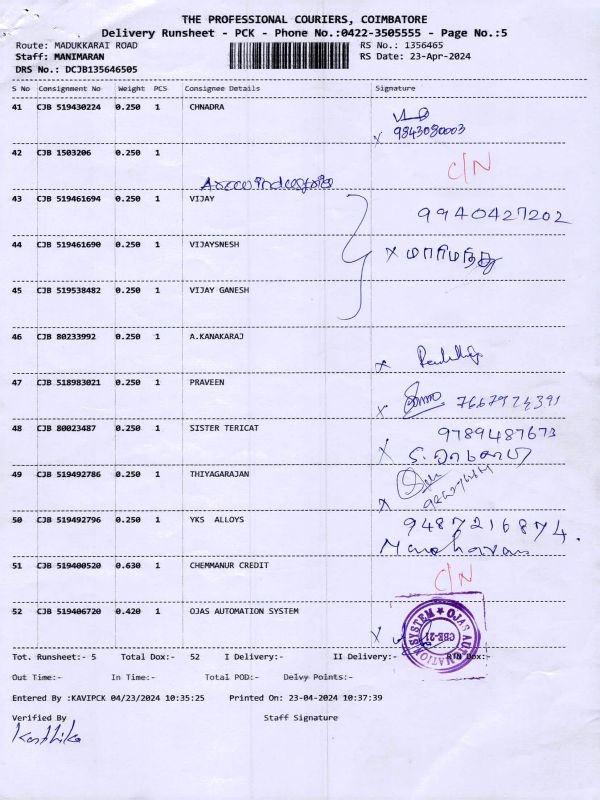 THE PROFESSIONAL COURIERS, COIMBATORE
Delivery Runsheet - PCK - Phone No.:0422-3505555 - Page No.:5
Route: MADUKKARAI ROAD RS No.: 1356465
Staff: MANIMARAN RS Date: 23-Apr-2024
DRS No.: DCJB135646505
S No Consignment No Weight PCS Consignee Details Signature
41 CJB 519430224 0.250 1 CHNADRA
x 9843080003
42 CJB 1503206 0.250 1 C/N
43 CJB 519461694 0.250 1 VIJAY 9940427202
44 CJB 519461690 0.250 1 VIJAYSNESH x மாரிமுத்து
45 CJB 519538482 0.250 1 VIJAY GANESH
46 CJB 80233992 0.250 1 A.KANAKARAJ x
47 CJB 518983021 0.250 1 PRAVEEN x 7667924391
48 CJB 80023487 0.250 1 SISTER TERICAT 9789487673
x
49 CJB 519492786 0.250 1 THIYAGARAJAN x
50 CJB 519492796 0.250 1 YKS ALLOYS 9487216874.
Manoharan
51 CJB 519400520 0.630 1 CHEMMANUR CREDIT C/N
52 CJB 519406720 0.420 1 OJAS AUTOMATION SYSTEM x
OJAS AUTOMATION SYSTEM ★ CBE-21
Tot. Runsheet:- 5 Total Dox:- 52 I Delivery:- II Delivery:- Dox:-
Out Time:- In Time:- Total POD:- Delvy Points:-
Entered By :KAVIPCK 04/23/2024 10:35:25 Printed On: 23-04-2024 10:37:39
Verified By Staff Signature
Karthika